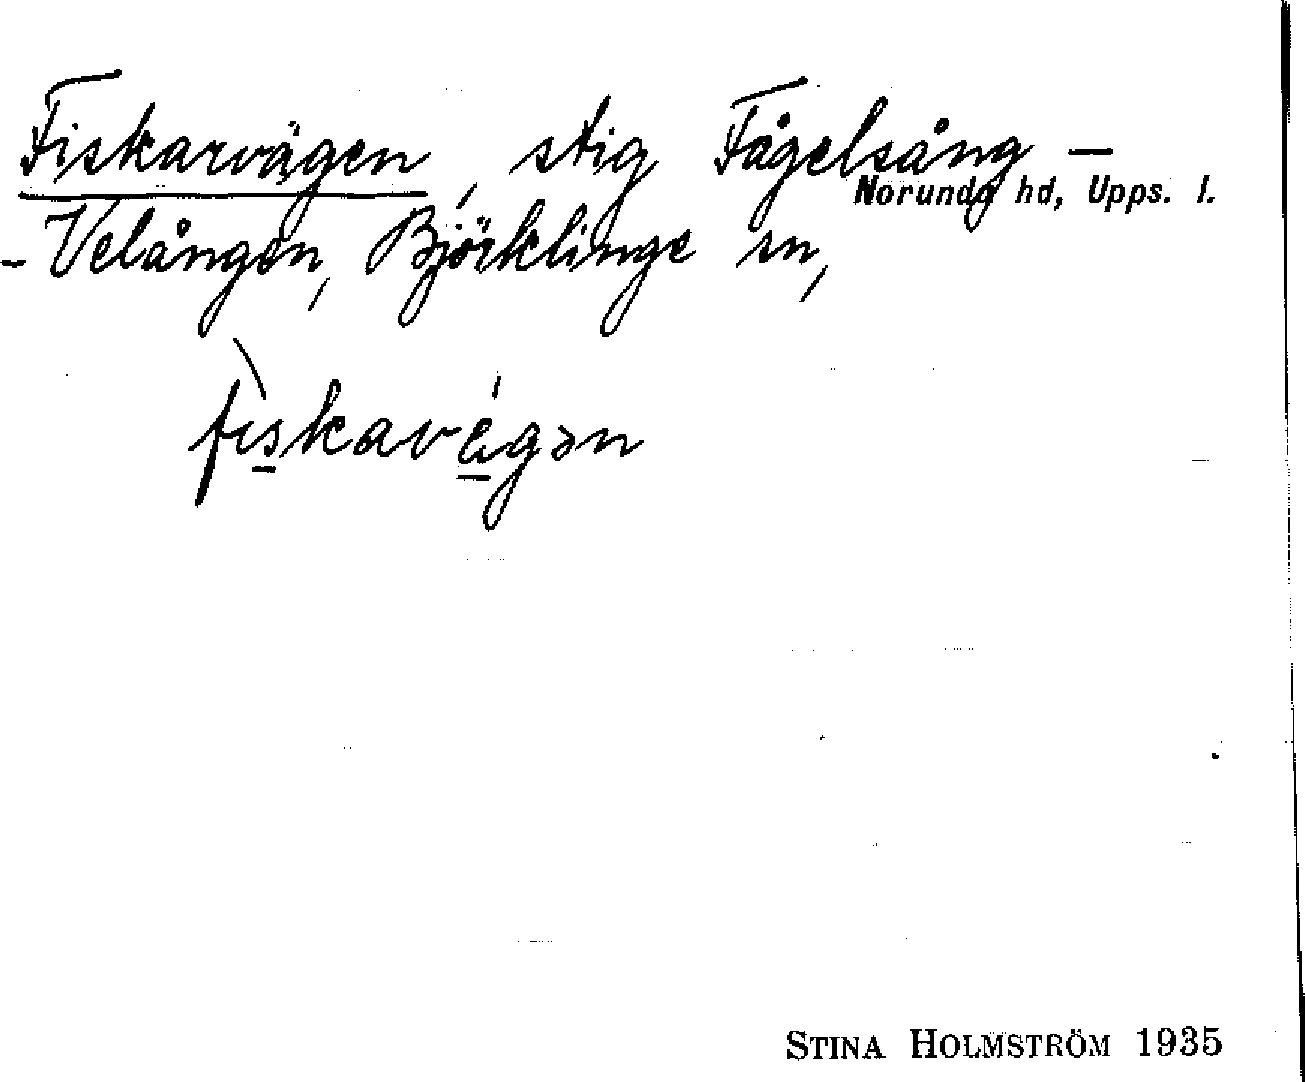 Fiskarvägen, stig Fågelsång —
Norunda hd, Upps. l.
- Velången, Björklinge sn,
fìskavǽgən
STINA HOLMSTRÖM 1935